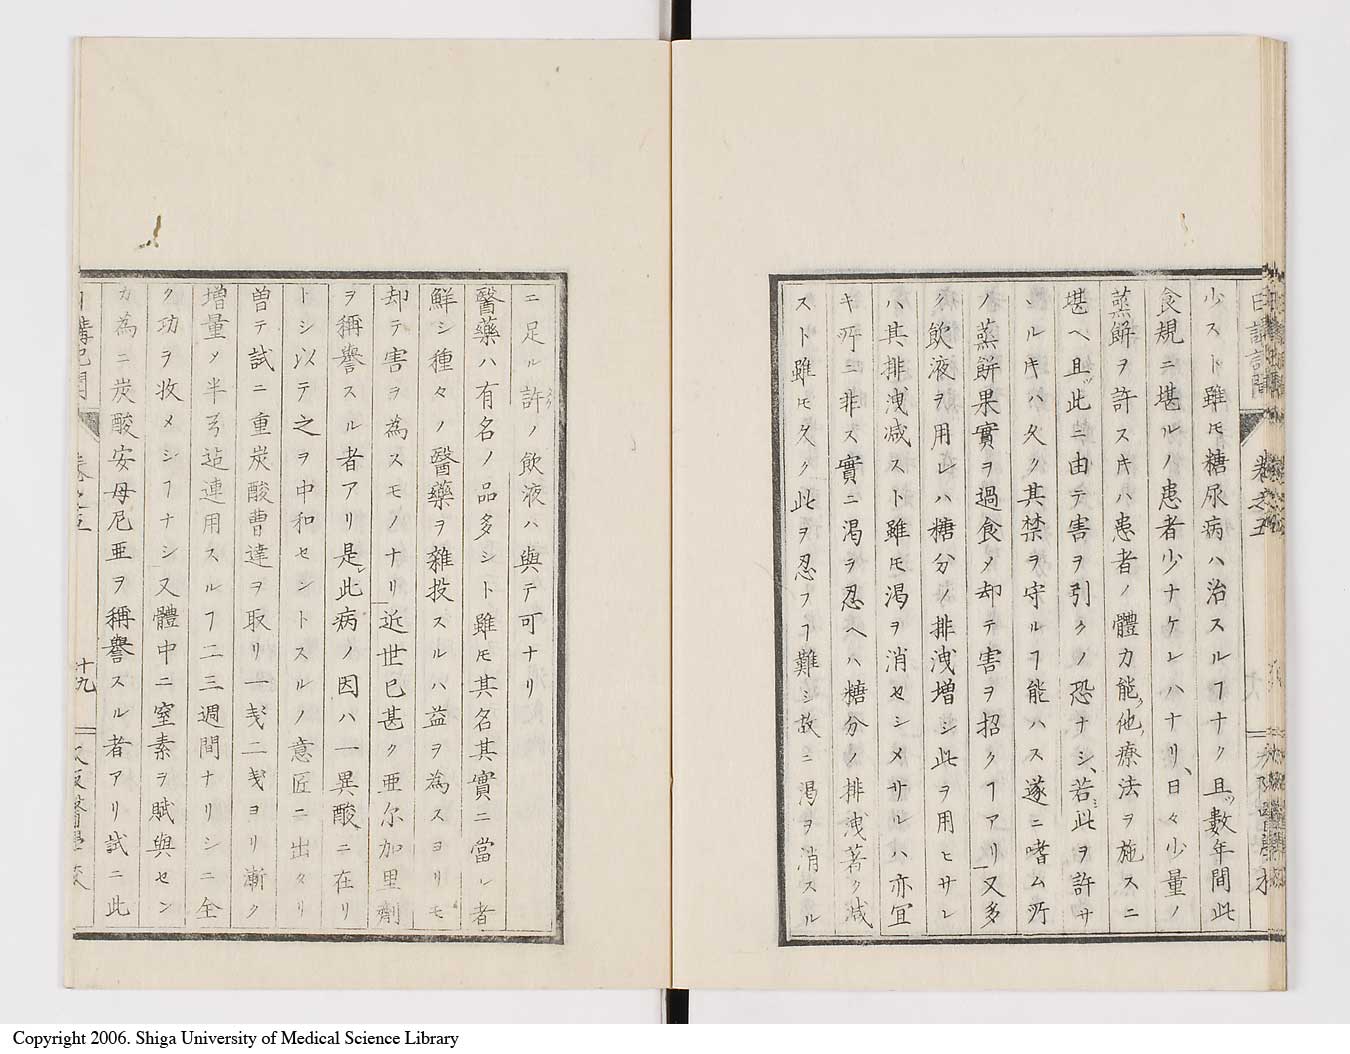 少スト雖モ糖尿病ハ治スルヿナク且ッ數年間此
食規ニ堪ルノ患者少ナケレハナリ、日々少量ノ
蒸餅ヲ許スキハ患者ノ體力能ク他ノ療法ヲ施スニ
堪ヘ且ッ此ニ由テ害ヲ引クノ恐ナシ、若シ此ヲ許サ
ヽルキハ久ク其禁ヲ守ルヿ能ハス遂ニ嗜ム所
ノ蒸餅果實ヲ過食メ却テ害ヲ招クヿアリ又多
ク飲液ヲ用レハ糖分ノ排洩増シ此ヲ用ヒサレ
ハ其排洩減スト雖モ渇ヲ消セシメサルハ亦宜
キ所ニ非ス實ニ渇ヲ忍ヘハ糖分ノ排洩著ク減
スト雖モ久ク此ヲ忍フヿ難シ故ニ渇ヲ消スル
ニ足ル許ノ飲液ハ與テ可ナリ
醫藥ハ有名ノ品多シト雖モ其名其實ニ當レ者
鮮シ種々ノ醫藥ヲ雜投スルハ益ヲ為スヨリモ
却テ害ヲ為スモノナリ近世已甚ク亜尔加里劑
ヲ稱譽スル者アリ是レ此病ノ因ハ一異酸ニ在リ
トシ以テ之ヲ中和セントスルノ意匠ニ出タリ
曽テ試ニ重炭酸曹達ヲ取リ一戔二戔ヨリ漸ク
増量メ半弖迠連用スルヿ二三週間ナリシニ全
ク功ヲ收メシヿナシ又體中ニ窒素ヲ賦與セン
カ為ニ炭酸安母尼亜ヲ稱譽スル者アリ試ニ此
日講記聞 卷之五 十九 大阪醫學校
Copyright 2006. Shiga University of Medical Science Library